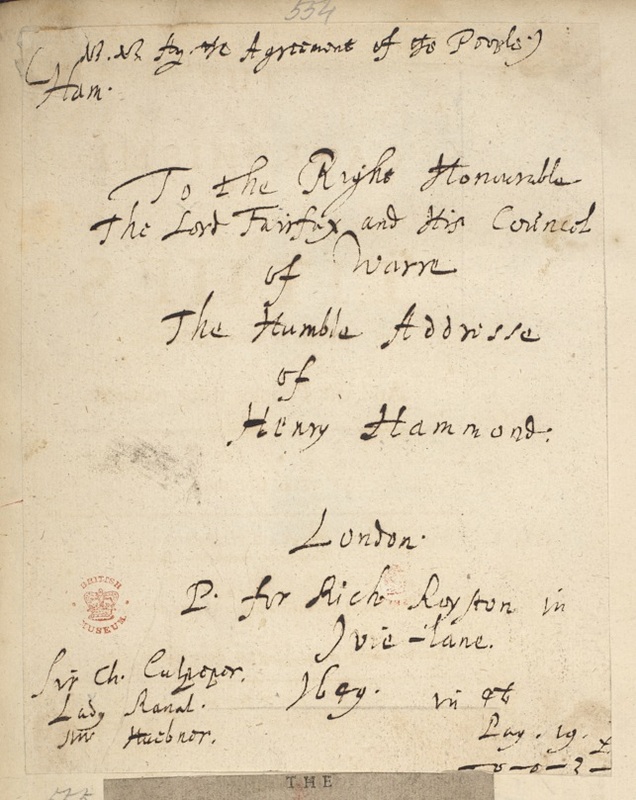 554
by the Agreement of the People)
Ham.
To the Right Honourable
The Lord Fairfax and His Councel
of Warre
The Humble Addresse
of
Henry Hammond.
London.
P. for Rich Royston in
Ivie-lane.
1649. in 4t
Sir Ch. Culpeper.
Lady Ranal.
Mr Huebner.
Pag. 19.
BRITISH
MUSEUM
THE